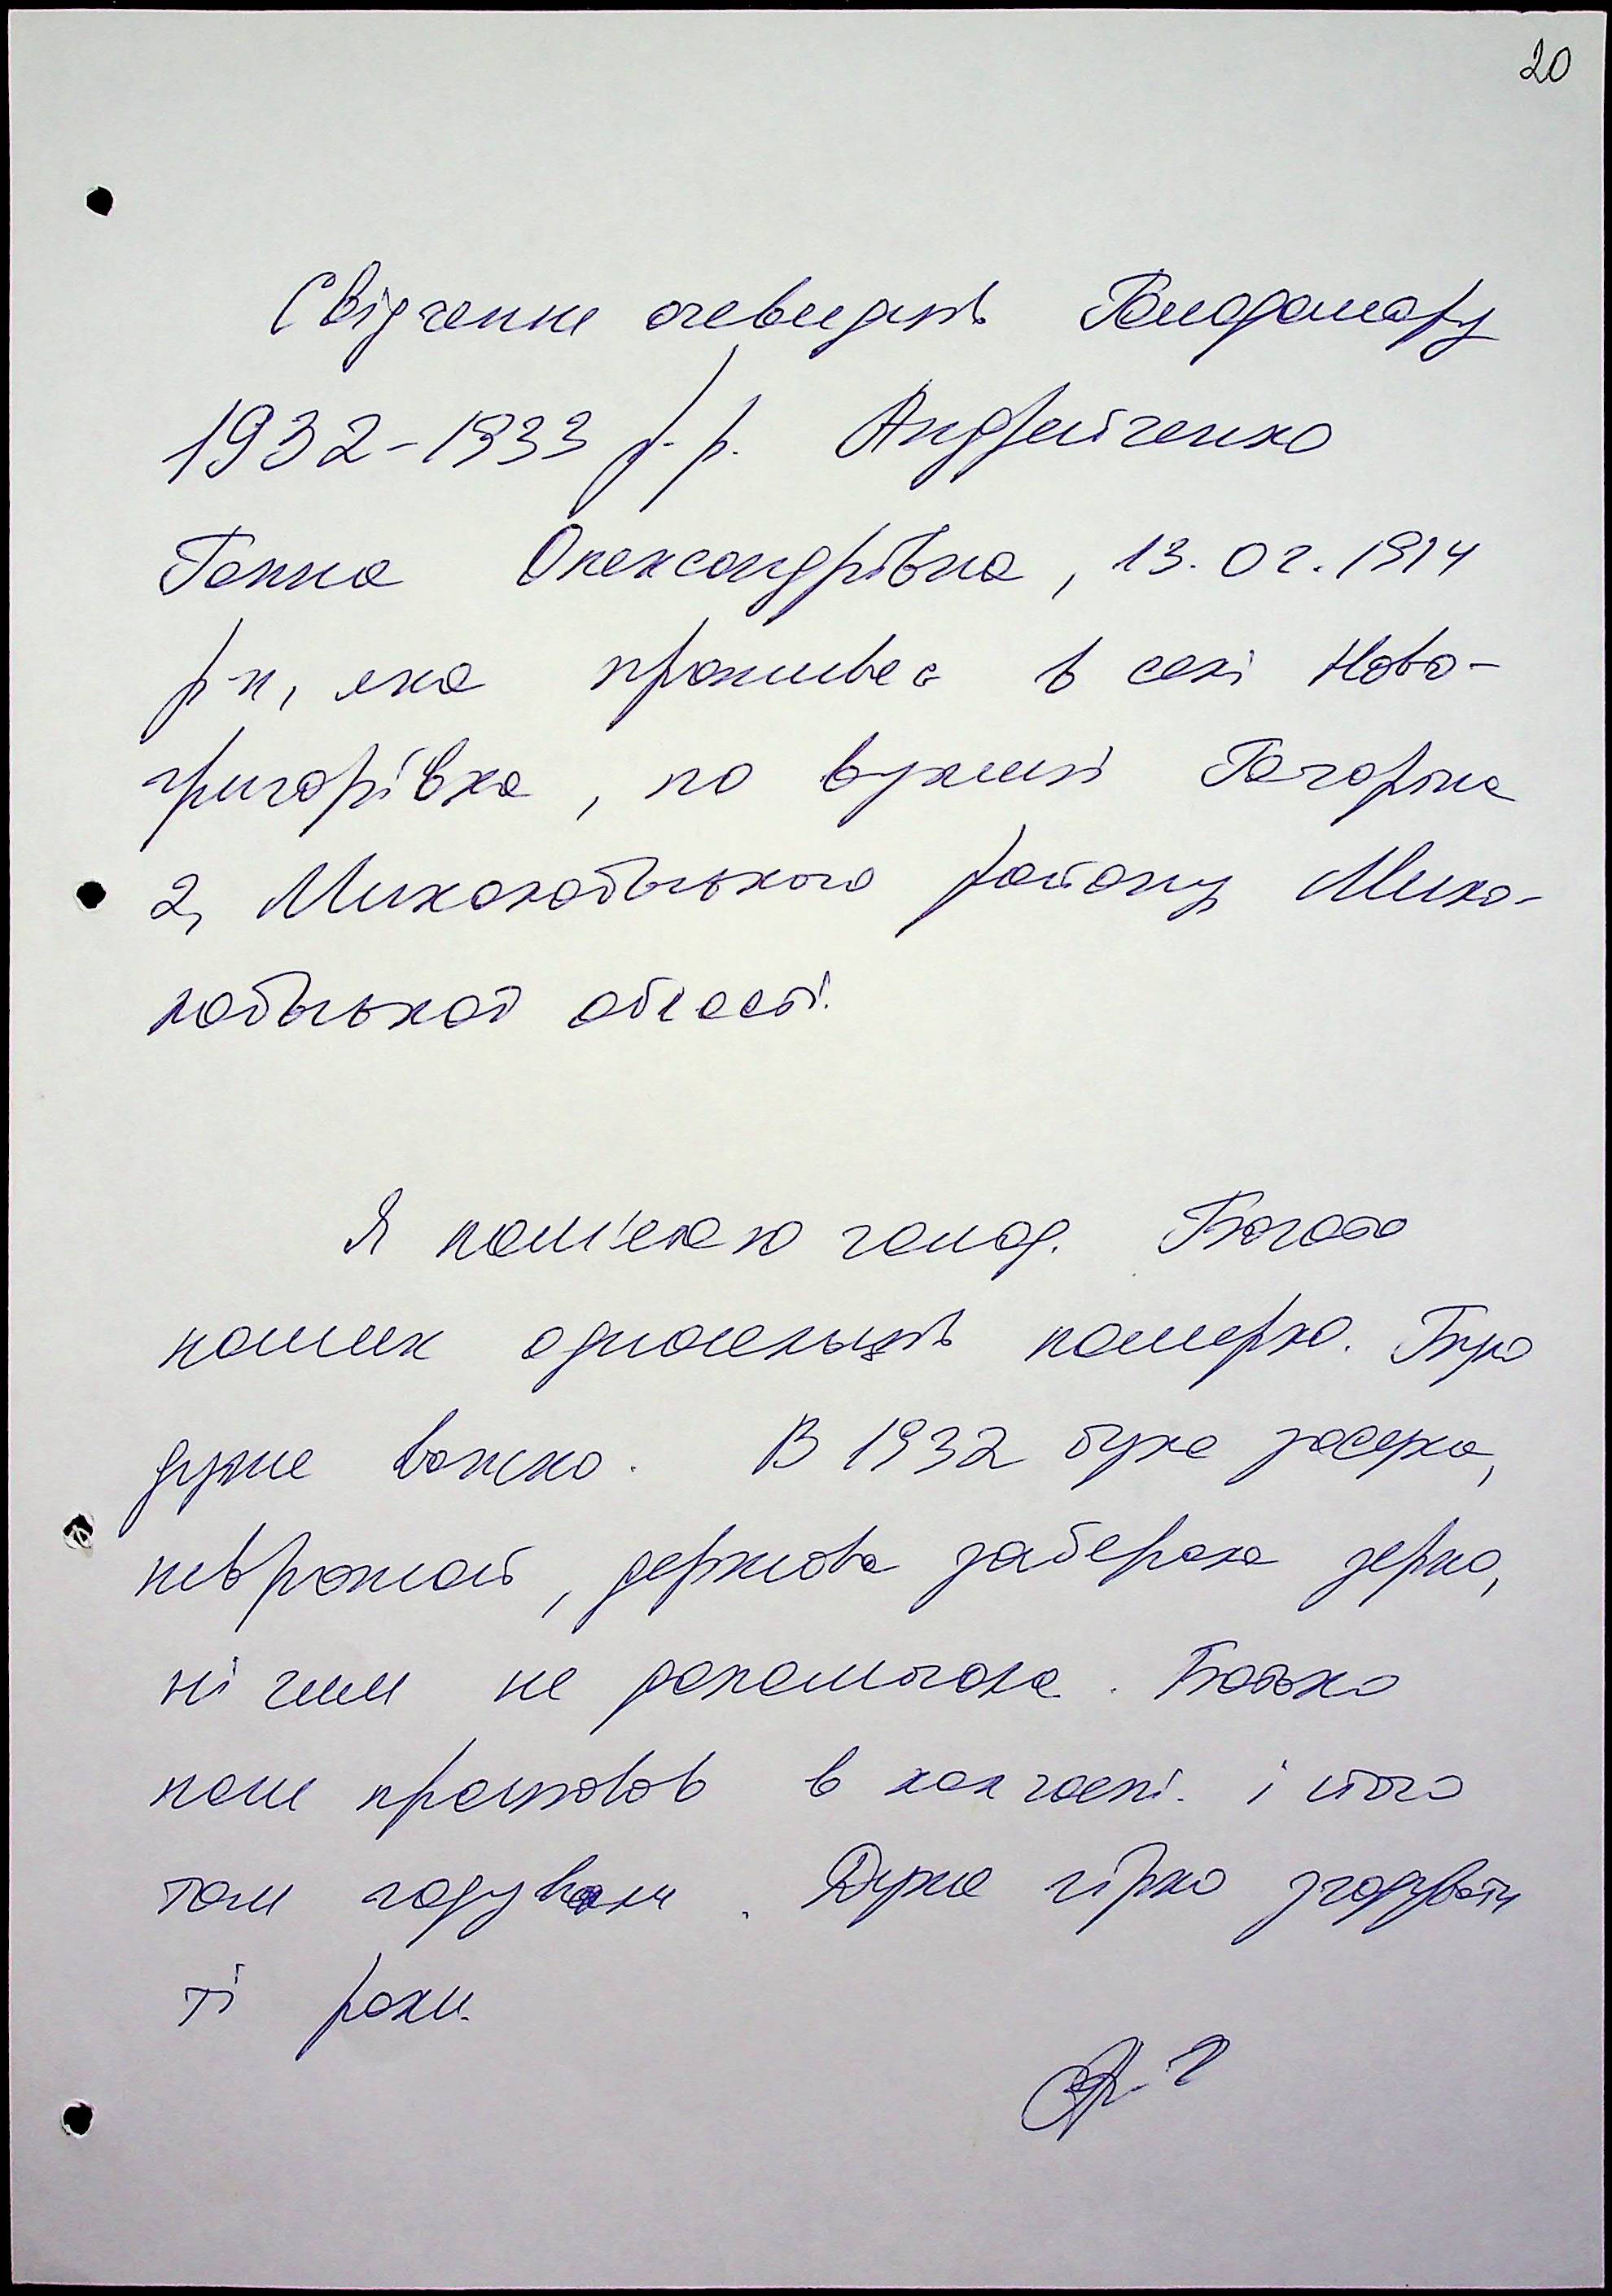 20
Свідчення очевидців Голодомору
1932-1933 р.р. Андрейченко
Ганна Олександрівна, 13.02.1914
р-н, яка проживає в селі Ново-
григорівка, по вулиці Гагаріна
2, Миколаївського району Мико-
лаївської області.
Я пам'ятаю голод. Багато
наших односельців померло. Було
дуже важко. В 1932 була засуха,
неврожай, держава забирала зерно,
ні чим не допомагала. Батько
наш працював в колгоспі. і його
там годували. Дуже гірко згадувати
ті роки.